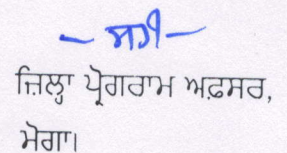 - ਸਹੀ -
ਜ਼ਿਲ੍ਹਾ ਪ੍ਰੋਗਰਾਮ ਅਫ਼ਸਰ,
ਮੋਗਾ।